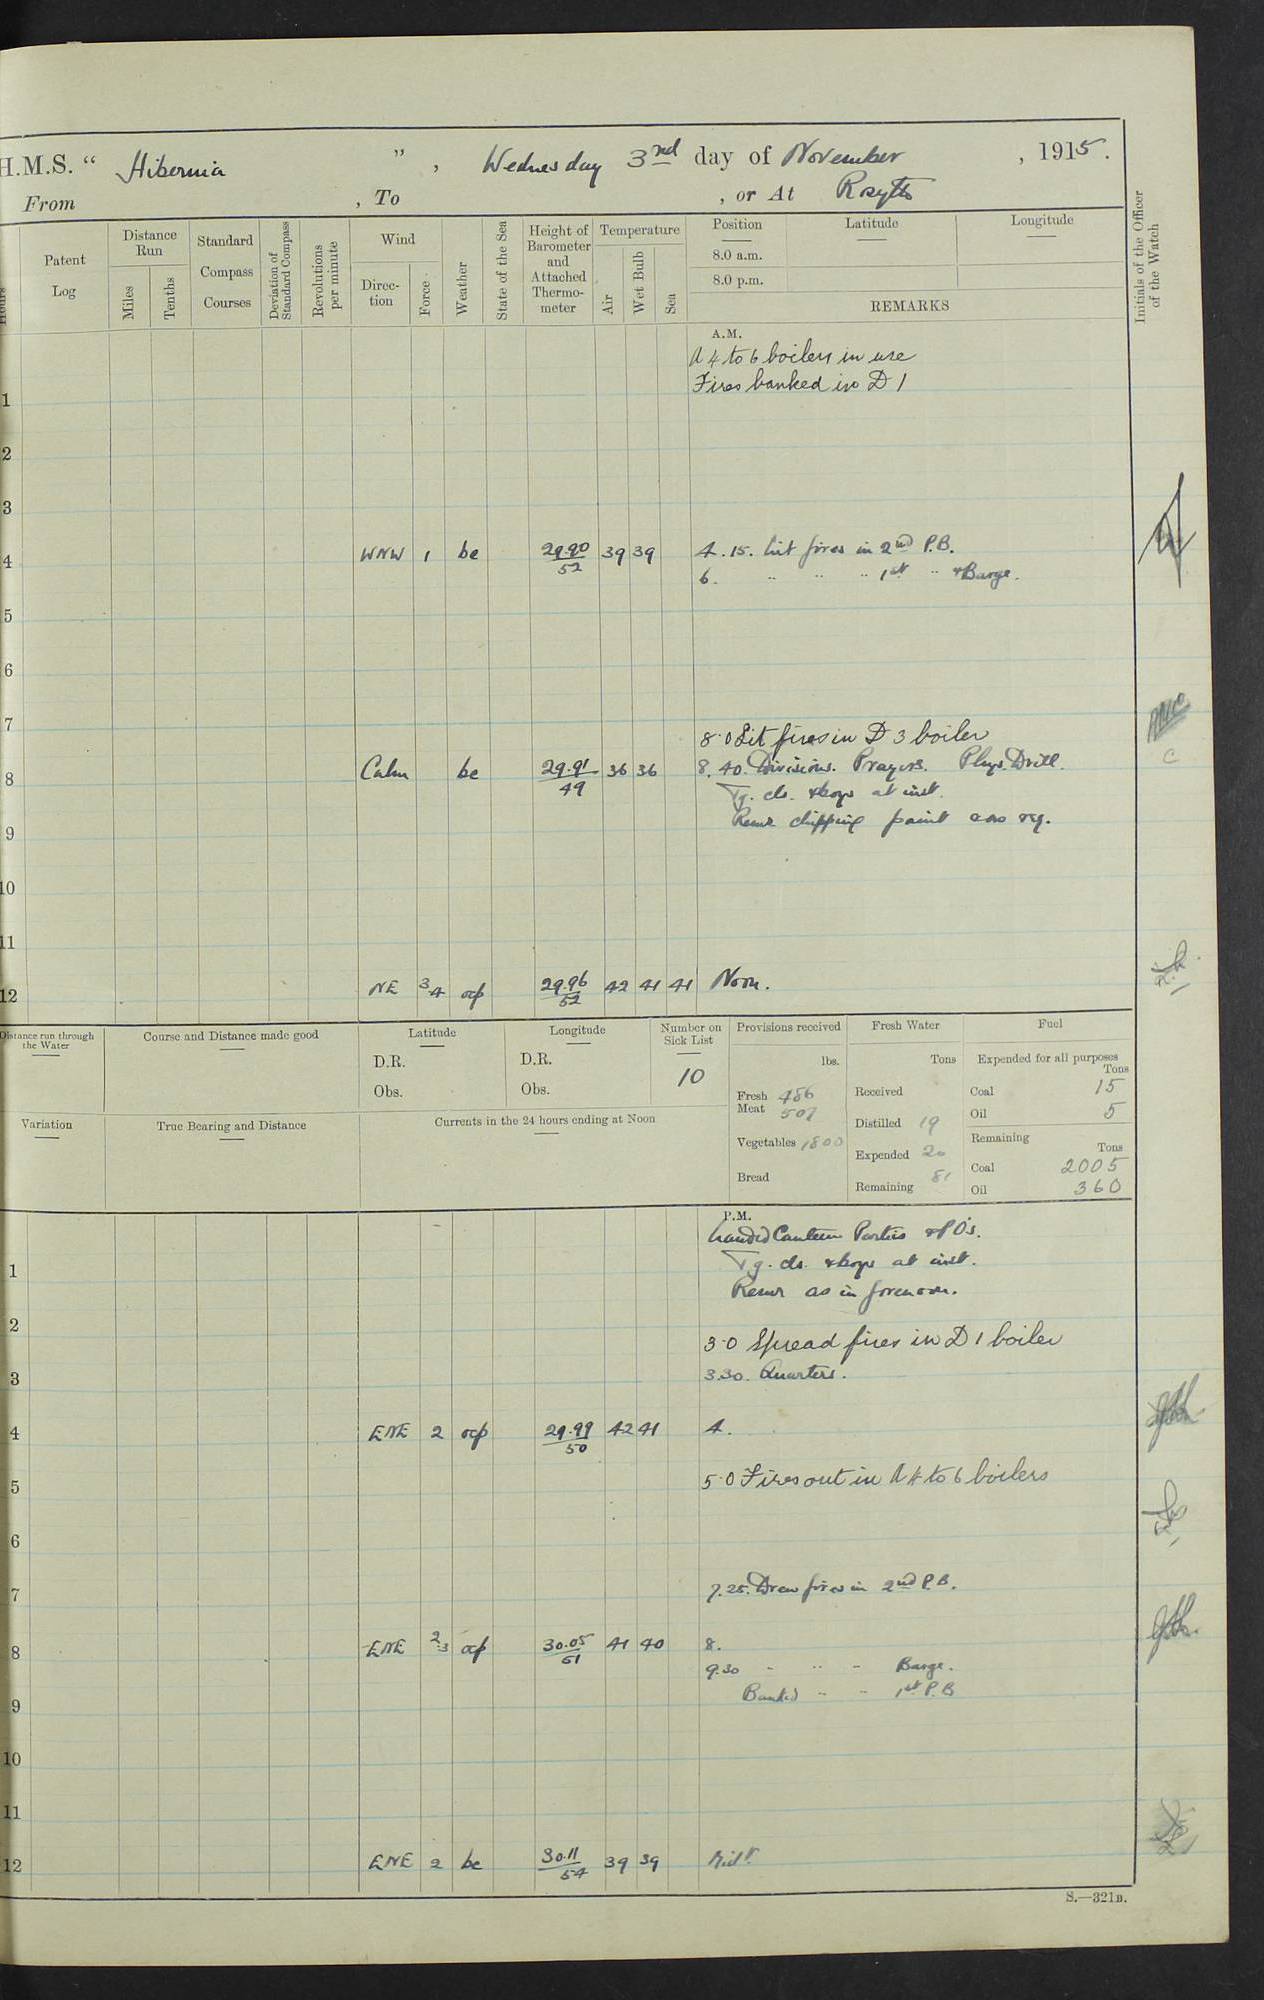 H.M.S. “ Hibernia ” , Wednesday 3rd day of November , 1915.
From , To , or At Rosyth
Hours
Patent Log
Distance Run
Miles
Tenths
Standard Compass Courses
Deviation of Standard Compass
Revolutions per minute
Wind
Direction
Force
Weather
State of the Sea
Height of Barometer and Attached Thermometer
Temperature
Air
Wet Bulb
Sea
Position
8.0 a.m.
8.0 p.m.
Latitude
Longitude
REMARKS
Initials of the Officer of the Watch
A.M.
A 4 to 6 boilers in use
1 Fires banked in D 1
2
3
4 WNW 1 bc 29.90/52 39 39 4.15. Lit fires in 2nd P.B.
6. " " " 1st " & Barge.
5
6
7
8.0 Lit fires in D 3 boiler
8 Calm bc 29.91/49 36 36 8.40. Divisions. Prayers. Phys. Drill.
Tg. cls. & boys at inst.
9 Remr chipping paint
10
11
12 NE 3.4 ocp 29.96/52 42 41 41 Noon.
Distance run through the Water
Course and Distance made good
Latitude
D.R.
Obs.
Longitude
D.R.
Obs.
Number on Sick List
10
Provisions received
lbs.
Fresh Meat 486
507
Vegetables 1800
Bread
Fresh Water
Tons
Received
Distilled 19
Expended 20
Remaining 81
Fuel
Expended for all purposes
Tons
Coal 15
Oil 5
Remaining
Tons
Coal 2005
Oil 360
Variation
True Bearing and Distance
Currents in the 24 hours ending at Noon
P.M.
Landed Canteen Parties & PO's.
1 Tg. cls. & boys at inst.
Remr as in forenoon.
2
3.0 Spread fires in D 1 boiler
3 3.30. Quarters.
4 ENE 2 ocp 29.99/50 42 41 4.
5 5.0 Fires out in A 4 to 6 boilers
6
7 7.25. Drew fires in 2nd P.B.
8 ENE 2.3 ocp 30.05/51 41 40 8.
9.30 " " " Barge.
9 Banked " " 1st P.B
10
11
12 ENE 2 bc 30.11/54 39 39 Midt.
S.—321B.